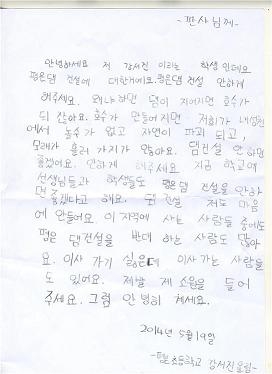 -판사님께-
안녕하세요 저 강서진 이라는 학생 인데요
평은댐 건설에 대한거예요. 평은댐 건설 안하게
해주세요. 왜냐하면 댐이 지어지면 호수가
되 잖아요. 호수가 만들어지면 저희가 내성천
에서 놀수가 없고 자연이 파괴 되고,
모래가 흘러 가지가 않아요. 댐건설 안 하면
좋겠어요. 안하게 해주세요 지금 학교에
선생님들과 학생들도 평은 댐 건설을 안하
면 좋겠다고 해요. 댐 건설 저도 마음
에 안들어요 이 지역에 사는 사람들 중에도
평은 댐건설을 반대 하는 사람도 많아
요. 이사 가기 싫은데 이사가는 사람들
도 있어요. 제발 제 소원을 들어
주세요. 그럼 안녕히 계세요.
2014년 5월 19일
-평은초등학교 강서진 올림-